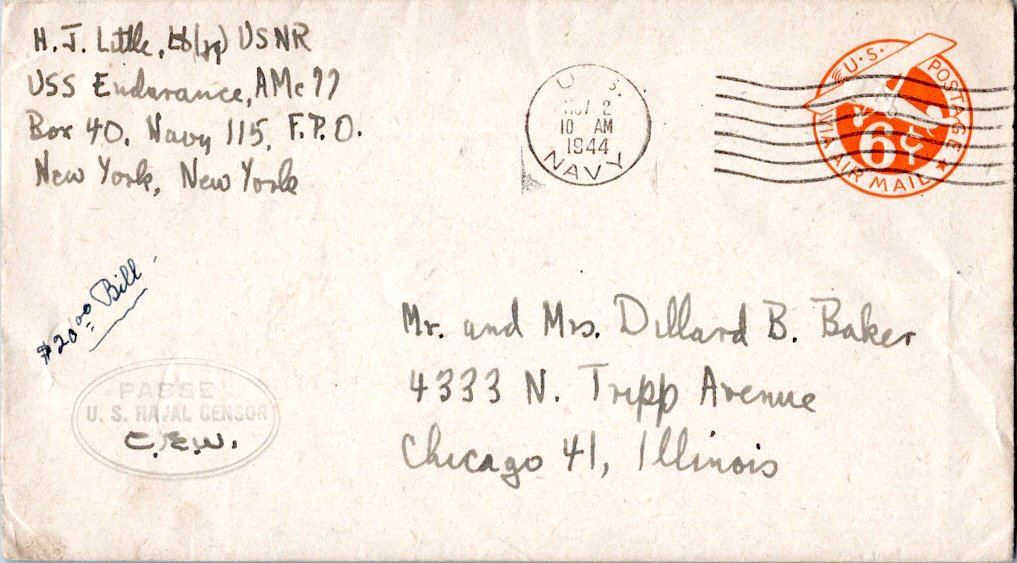 H. J. Little, Lt(jg) USNR
USS Endurance, AMc 77
Box 40, Navy 115, F.P.O.
New York, New York
U. S.
NOV 2
10 AM
1944
NAVY
U.S. POSTAGE
6¢
VIA AIR MAIL
$20.00 Bill
PASSE
U. S. NAVAL CENSOR
C.E.W.
Mr. and Mrs. Dillard B. Baker
4333 N. Tripp Avenue
Chicago 41, Illinois